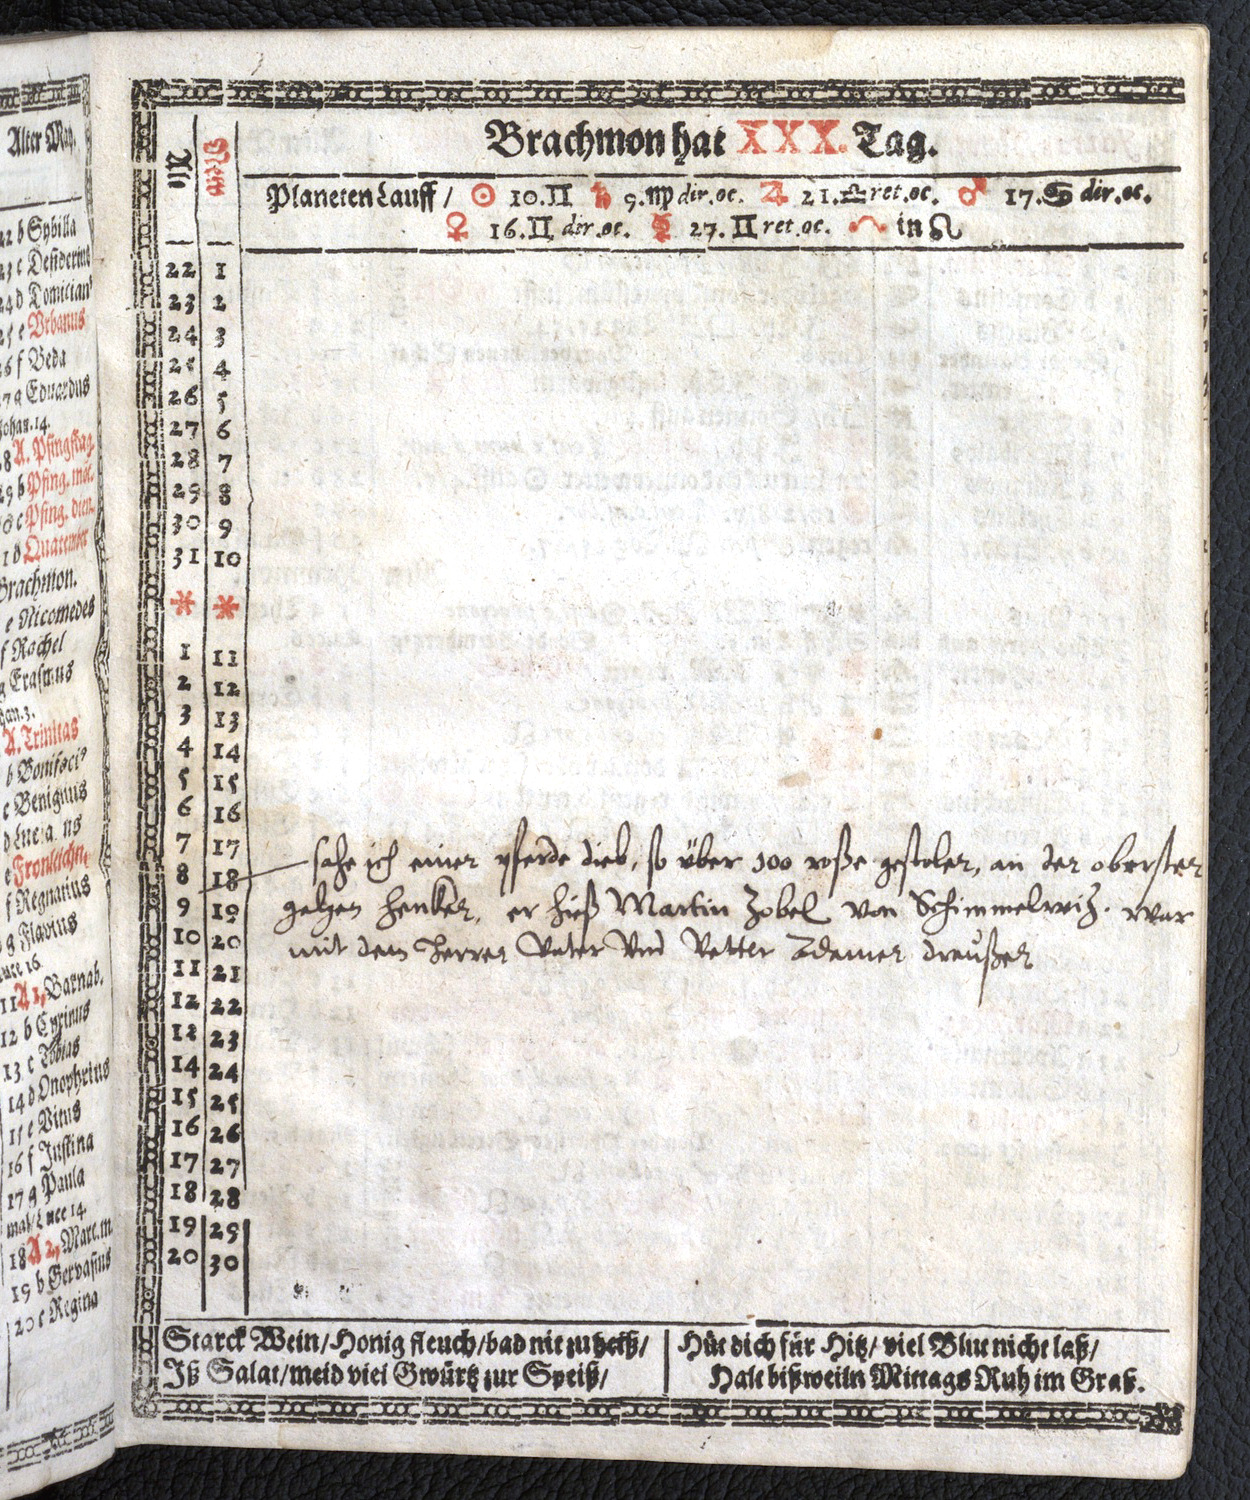 Alter May.
22 b Sybilla
23 c Desiderius
24 d Domician
25 e Vrbanus
26 f Beda
27 g Eduardus
Johan. 14.
28 A. Pfingstag.
29 b Pfing. mo.
30 c Pfing. dien.
31 d Quatember
Brachmon.
e Nicomedes
f Rachel
g Erasmus
Joan. 3.
A. Trinitas
b Bonifaci9
c Benignus
d
e Fronleichn.
f Regnatius
g Flavius
Luce 16.
11 A 1. Barnab.
12 b Cyrinus
13 c Tobias
14 d Onophrius
15 e Vitus
16 f Justina
17 g Paula
mal/Luce 14
18 A 2. Marc. m.
19 b Gervasius
20 c Regina
Alt New
Brachmon hat XXX. Tag.
Planeten Lauff / ☉ 10.♊ ♄ 9.♍ dir.oc. ♃ 21.♎ ret.oc. ♂ 17.♋ dir.oc.
♀ 16.♊ dir.oc. ☿ 27.♊ ret.oc. in ♌
22 1
23 2
24 3
25 4
26 5
27 6
28 7
29 8
30 9
31 10
* *
1 11
2 12
3 13
4 14
5 15
6 16
7 17
8 18
9 19
10 20
11 21
12 22
13 23
14 24
15 25
16 26
17 27
18 28
19 29
20 30
sahe ich einen pferde dieb, so über 100 roße gestolen, an den obersten
galgen henken, er hieß Martin Zobel von Schimmelwitz. war
mit dem Herren Vater vnd Vetter Adamen draußen
Starck Wein/Honig fleuch/bad nit zu heiß/
Iß Salat/meid viel Gwürtz zur Speiß/
Hüt dich für Hitz/ viel Blut nicht laß/
Halt bißweiln Mittags Ruh im Graß.